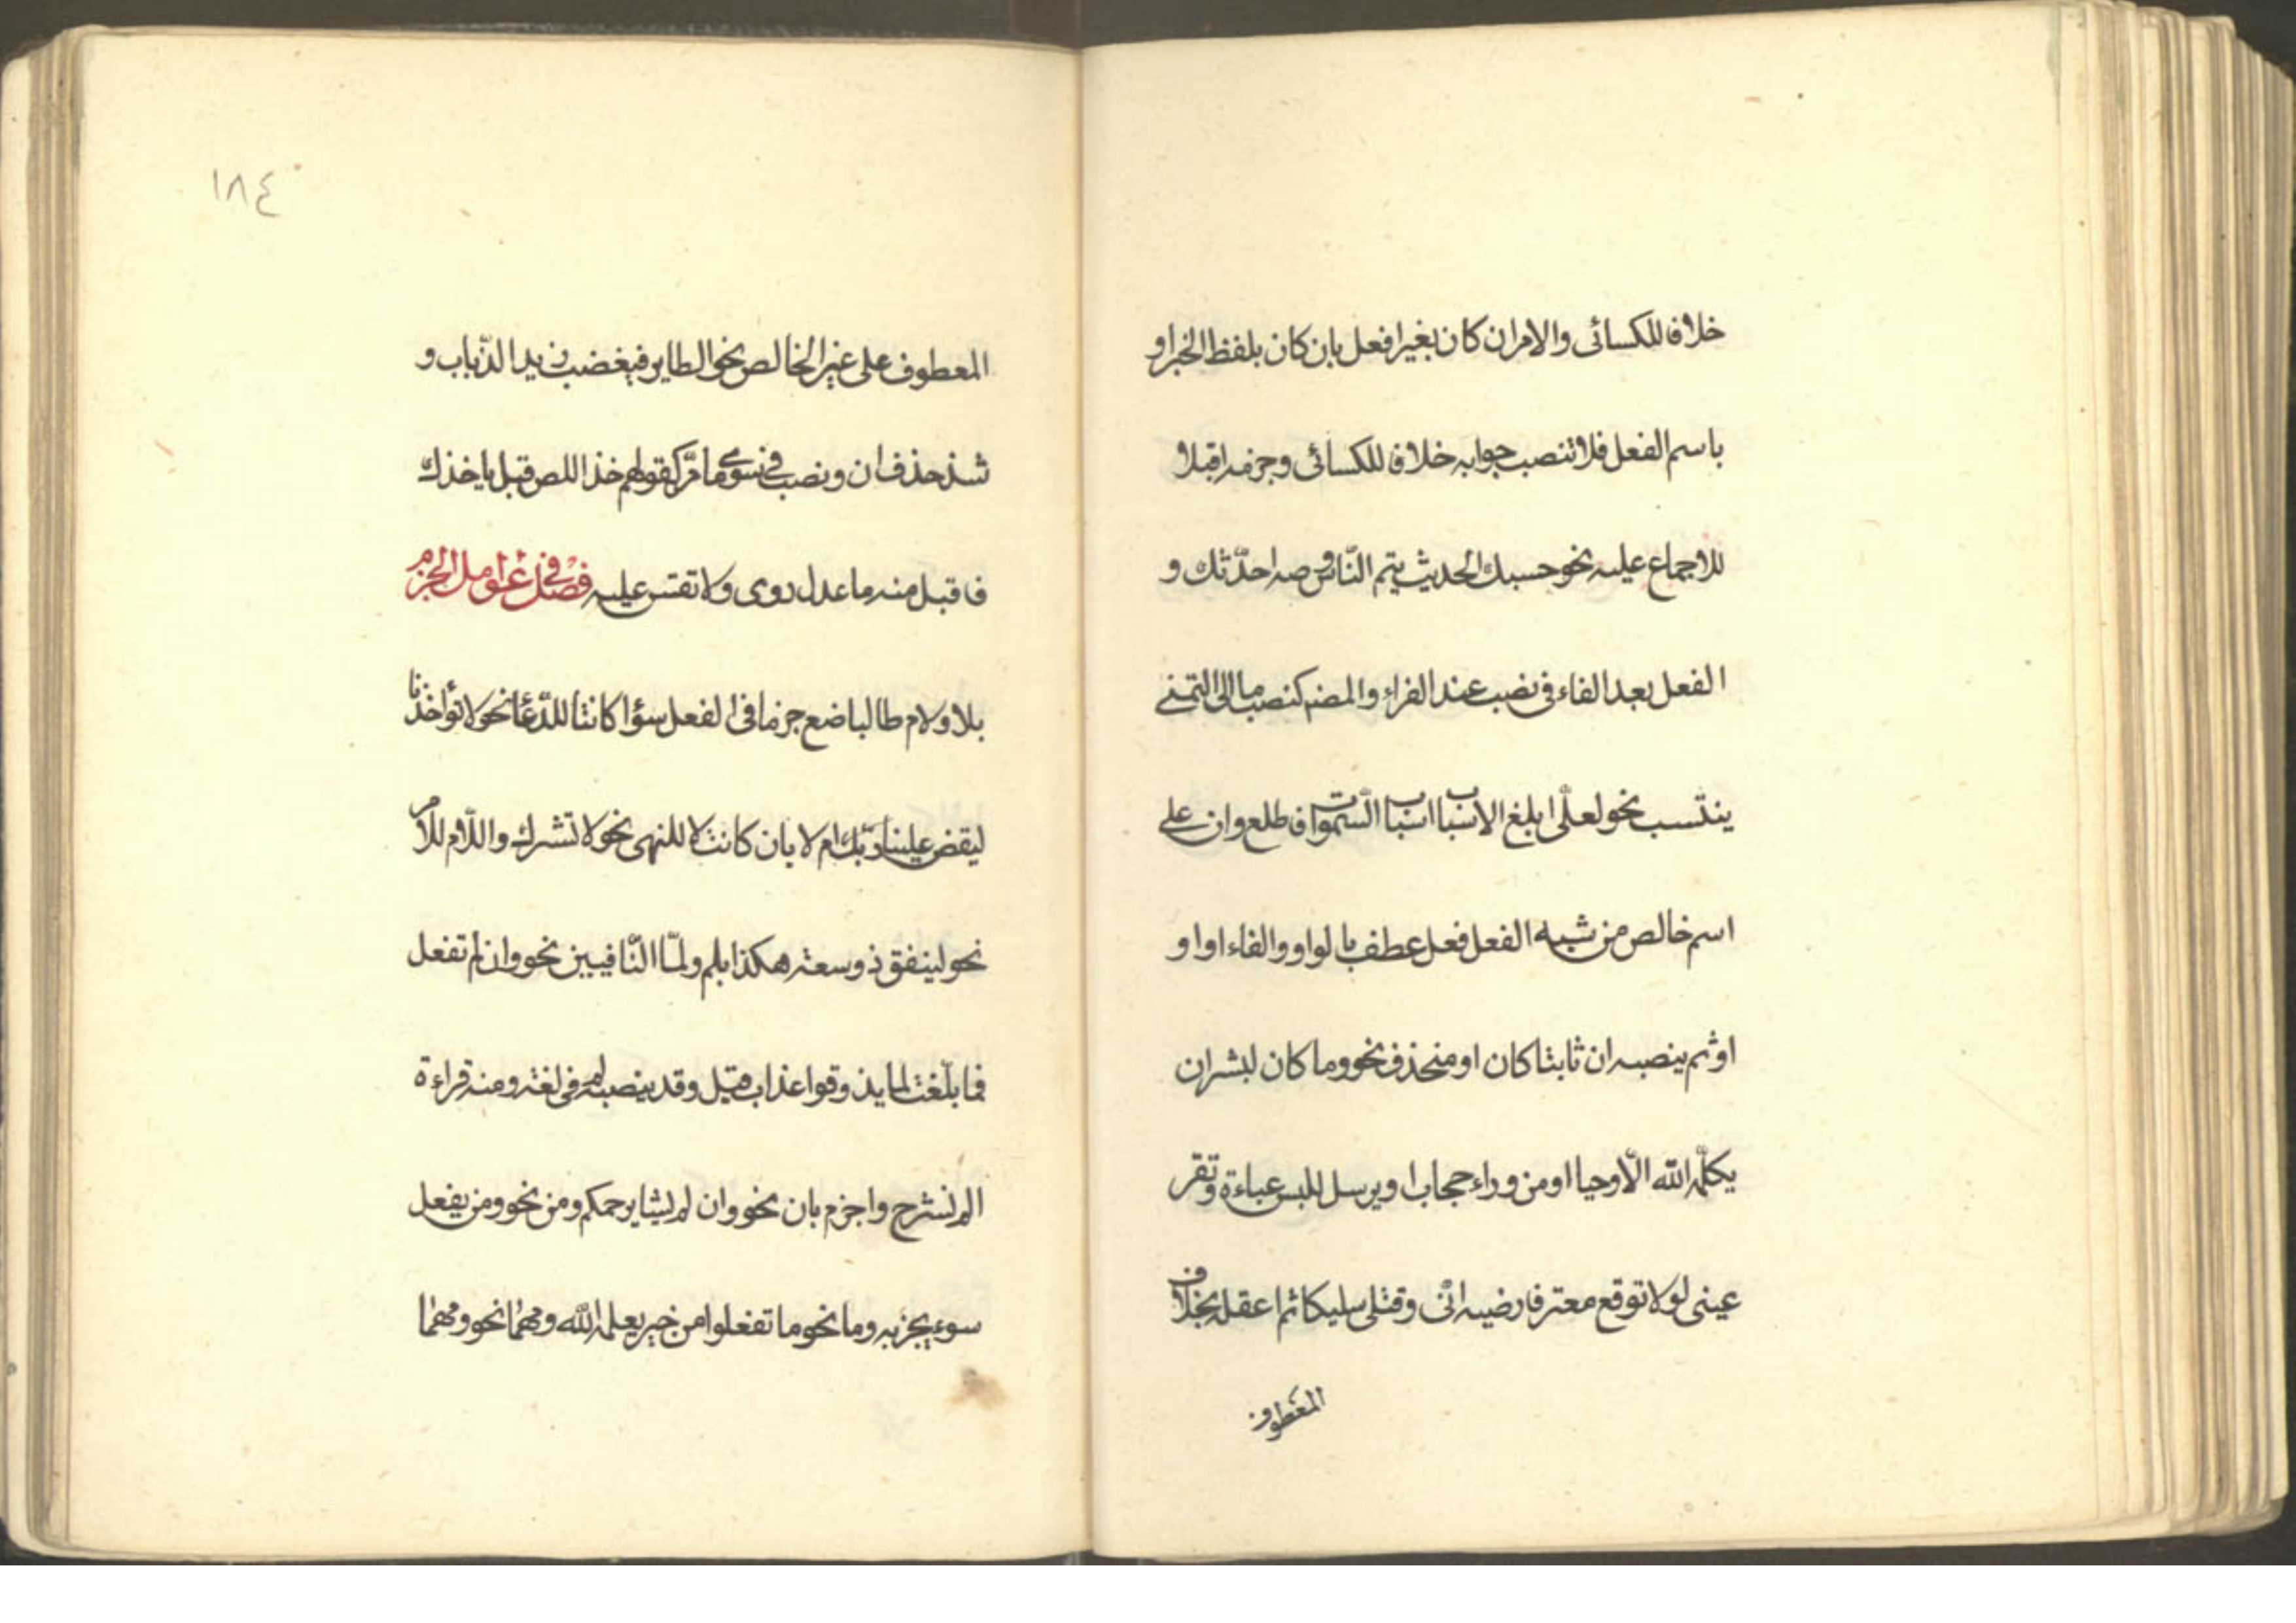 خلافا للكسائى والامران كان بغير افعل بان كان بلفظ الخبر او
باسم الفعل فلا تنصب جوابه خلافا للكسائى وجزمه اقبلا
للاجماع عليه نحو حسبك الحديث يتم النّاس وصه احدّثك و
الفعل بعد الفاء فى نصب عند الفراء والمضم كنصب ما الى التمنى
ينتسب نحو لعلّى ابلغ الاسباب اسباب السّموات فاطلع وان على
اسم خالص من شبه الفعل فعل عطف بالواو والفاء او او
او ثم ينصبه ان ثابتا كان او منحذف نحو وما كان لبشر ان
يكلّمه الله الّا وحيا او من وراء حجاب او يرسل للبس عباءة وتقر
عينى لولا توقع معتر فارضيه انّى وقتلى سليكا ثم اعقله بخلاف
المعطوف
١٨٤
المعطوف على غير الخالص نحو الطاير فيغضب زيد الذّباب و
شذ حذف ان ونصب فى سوى ما مرّ كقولهم خذ اللص قبل ياخذك
فاقبل منه ما عدل روى ولا تقس عليه فصل فى عوامل الجزم
بلا ولام طالبا ضع جزما فى الفعل سؤا كانتا للدّعا نحو لا تؤاخذنا
ليقض علينا ربّك ام لا بان كانت لا للنهى نحو لا تشرك واللّام للامر
نحو لينفق ذو سعته هكذا بلم ولمّا النّافيين نحو وان لم تفعل
فما بلّغت لما يذوقوا عذاب قيل وقد ينصب لم فى لغة ومنه قراءة
الم نشرح واجزم بان نحو وان لم يشا يرحمكم ومن نحو ومن يفعل
سوء يجز به وما نحو ما تفعلوا من خير يعلمه الله ومهما نحو ومهما